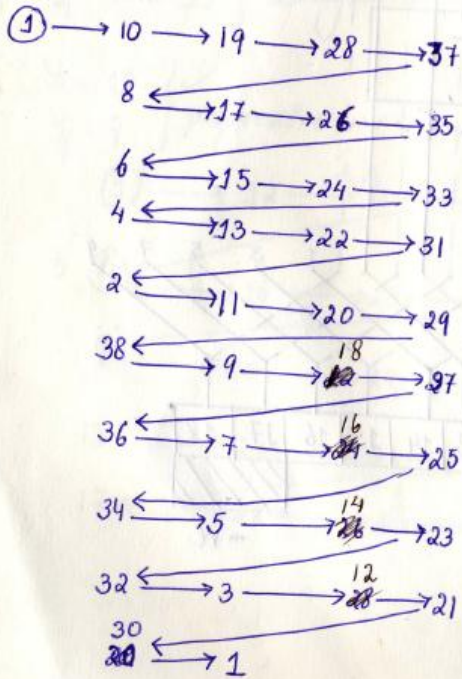 1 → 10 → 19 → 28 → 37
8 → 17 → 26 → 35
6 → 15 → 24 → 33
4 → 13 → 22 → 31
2 → 11 → 20 → 29
38 → 9 → 18 → 27
36 → 7 → 16 → 25
34 → 5 → 14 → 23
32 → 3 → 12 → 21
30 → 1